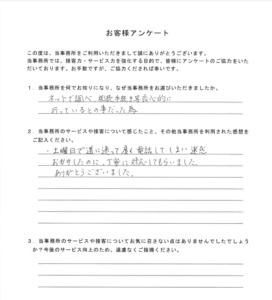 お客様アンケート
この度は、当事務所をご利用いただきまして誠にありがとうございます。
当事務所では、接客力・サービス力を強化する目的で、皆様にアンケートのご協力をいた
だいております。お手数ですが、ご協力くだされば幸いです。
1．当事務所を何でお知りになり、なぜ当事務所をお選びいただきましたか。
ネットで調べ、相続手続き等を中心的に
行っているとの事だった為
2．当事務所のサービスや接客について感じたこと、その他当事務所を利用された感想を
ご記入ください。
・土曜日で道に迷って遅く電話してしまい迷惑
おかけしたのに、丁寧に対応してもらいました。
ありがとうございました。
3．当事務所のサービスや接客についてお気に召さない点はありませんでしたでしょう
か？今後のサービス向上のため、遠慮なくご指摘ください。